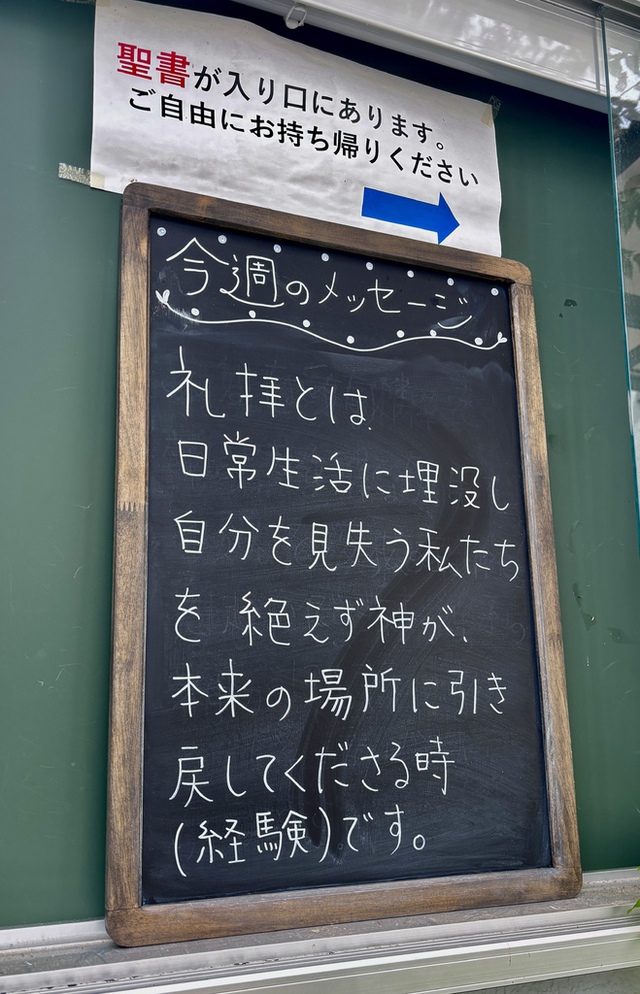 聖書が入り口にあります。
ご自由にお持ち帰りください
今週のメッセージ
礼拝とは、
日常生活に埋没し
自分を見失う私たち
を 絶えず神が、
本来の場所に引き
戻してくださる時
(経験)です。